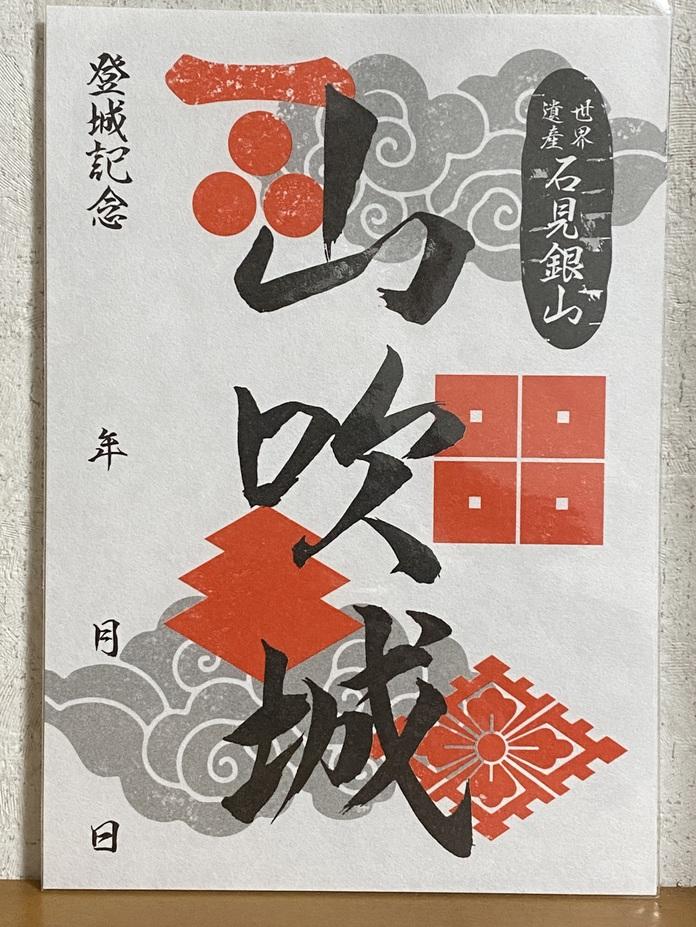 世界
遺産
石見銀山
山吹城
登城記念
年
月
日